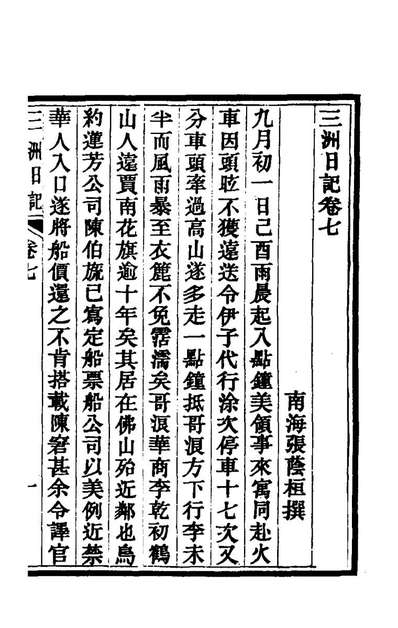 三洲日記卷七
南海張蔭桓撰
九月初一日己酉雨晨起八點鐘美領事來寓同赴火
車因頭眩不獲遠送令伊子代行涂次停車十七次又
分車頭牽過高山遂多走一點鐘抵哥浪方下行李未
半而風雨暴至衣簏不免霑濡矣哥浪華商李乾初鶴
山人遠賈南花旗逾十年矣其居在佛山殆近鄰也鳥
約蓮芳公司陳伯旒已寫定船票船公司以美例近禁
華人入口遂將船價還之不肯搭載陳窘甚余令譯官
三洲日記 卷七 一